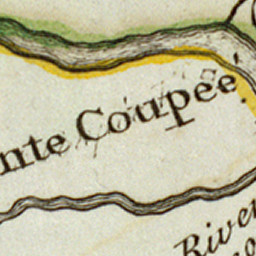 nte Coupée
River